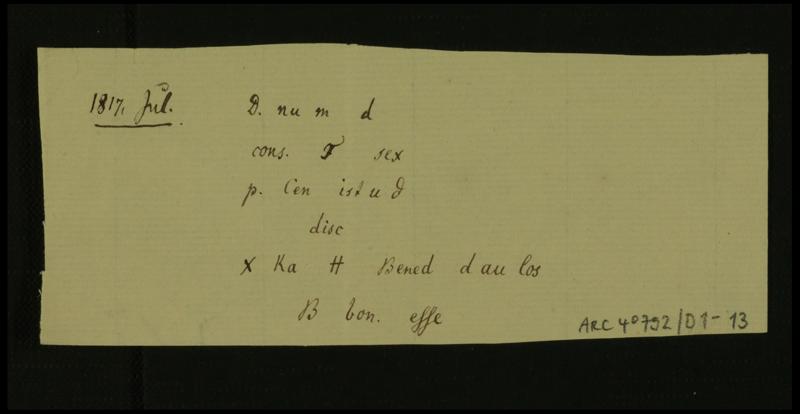 1817, Jul. D. nu m d
cons. sex
p. Cen ist u d
disc
x Ka # Bened d au los
B bon. esse
ARC 4° 792/D1-13